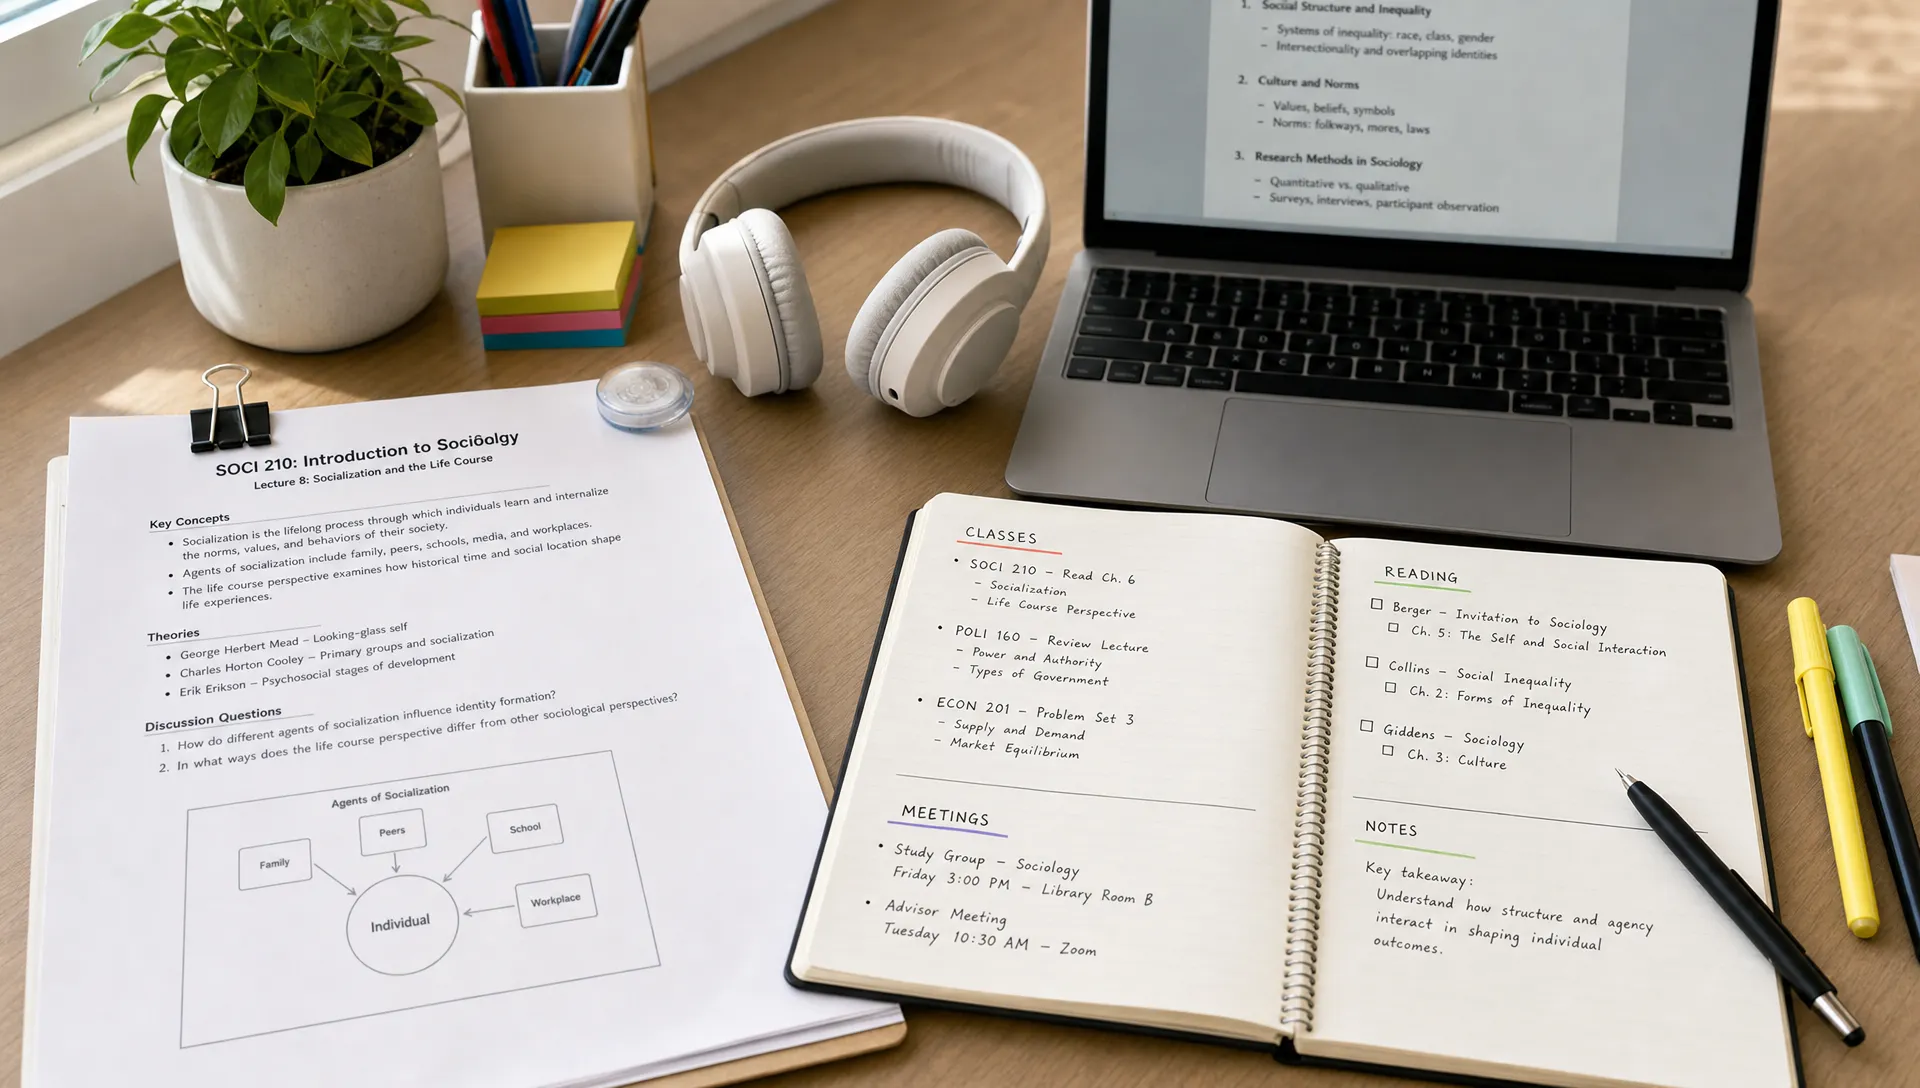 SOCI 210: Introduction to Sociôolgy
Lecture 8: Socialization and the Life Course
Key Concepts
• Socialization is the lifelong process through which individuals learn and internalize
the norms, values, and behaviors of their society.
• Agents of socialization include family, peers, schools, media, and workplaces.
• The life course perspective examines how historical time and social location shape
life experiences.
Theories
• George Herbert Mead – Looking-glass self
• Charles Horton Cooley – Primary groups and socialization
• Erik Erikson – Psychosocial stages of development
Discussion Questions
1. How do different agents of socialization influence identity formation?
2. In what ways does the life course perspective differ from other sociological perspectives?
Agents of Socialization
Family
Peers
School
Workplace
Individual
1. Social Structure and Inequality
– Systems of inequality: race, class, gender
– Intersectionality and overlapping identities
2. Culture and Norms
– Values, beliefs, symbols
– Norms: folkways, mores, laws
3. Research Methods in Sociology
– Quantitative vs. qualitative
– Surveys, interviews, participant observation
CLASSES
• SOCI 210 – Read Ch. 6
– Socialization
– Life Course Perspective
• POLI 160 – Review Lecture
– Power and Authority
– Types of Government
• ECON 201 – Problem Set 3
– Supply and Demand
– Market Equilibrium
MEETINGS
• Study Group – Sociology
Friday 3:00 PM – Library Room B
• Advisor Meeting
Tuesday 10:30 AM – Zoom
READING
☐ Berger – Invitation to Sociology
☐ Ch. 5: The Self and Social Interaction
☐ Collins – Social Inequality
☐ Ch. 2: Forms of Inequality
☐ Giddens – Sociology
☐ Ch. 3: Culture
NOTES
Key takeaway:
Understand how structure and agency
interact in shaping individual
outcomes.